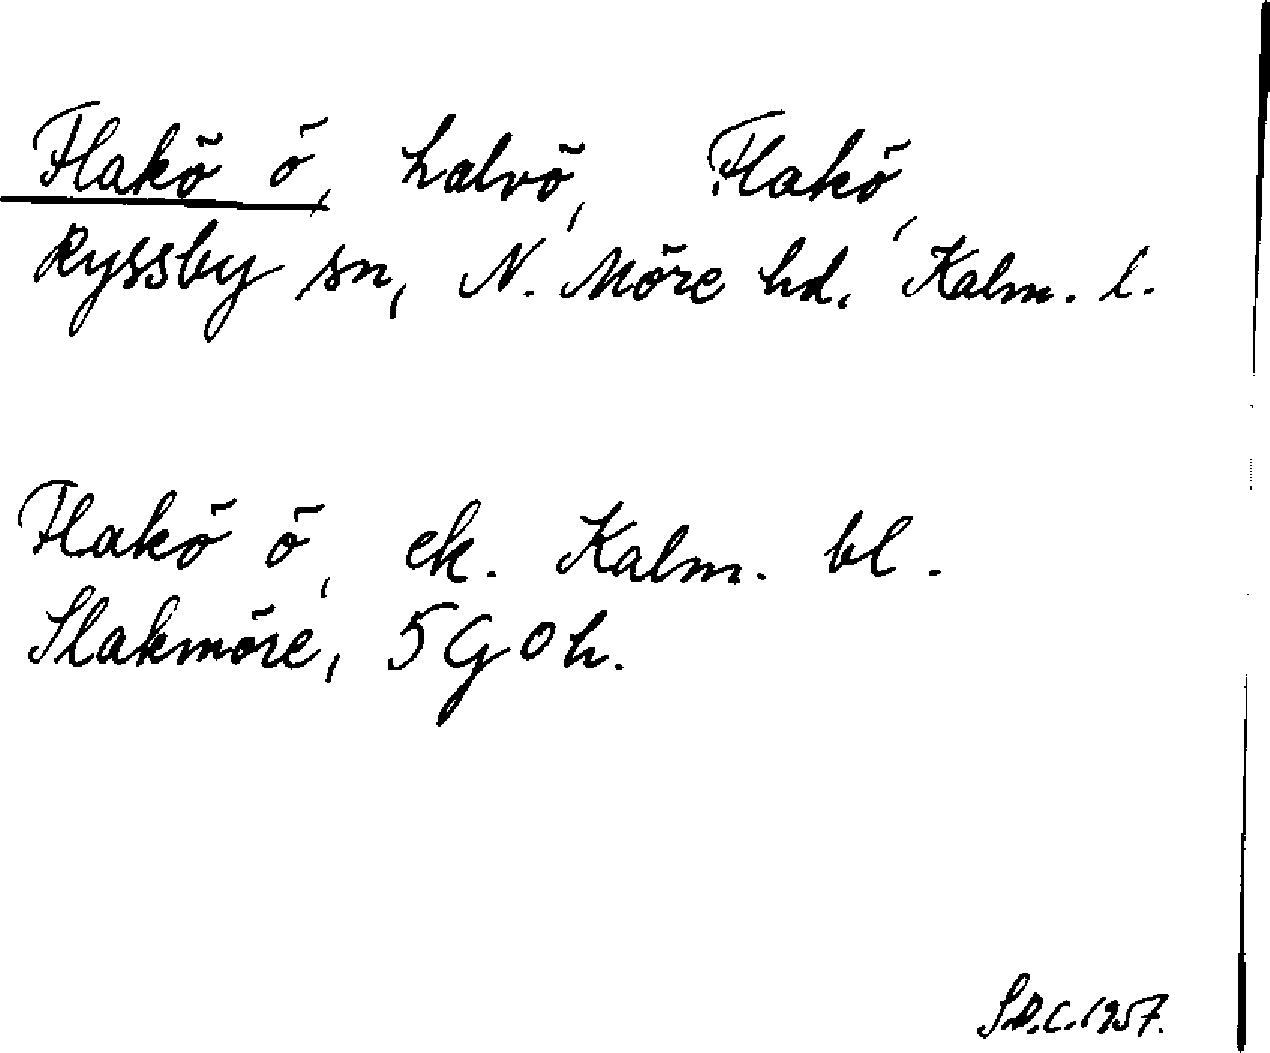 Flakö ö, halvö, Flakö,
Ryssby sn, N. Möre hd. Kalm. l.
Flakö ö, ek. Kalm. bl.
Slakmöre, 5 G o h.
S.D.C. 1957.